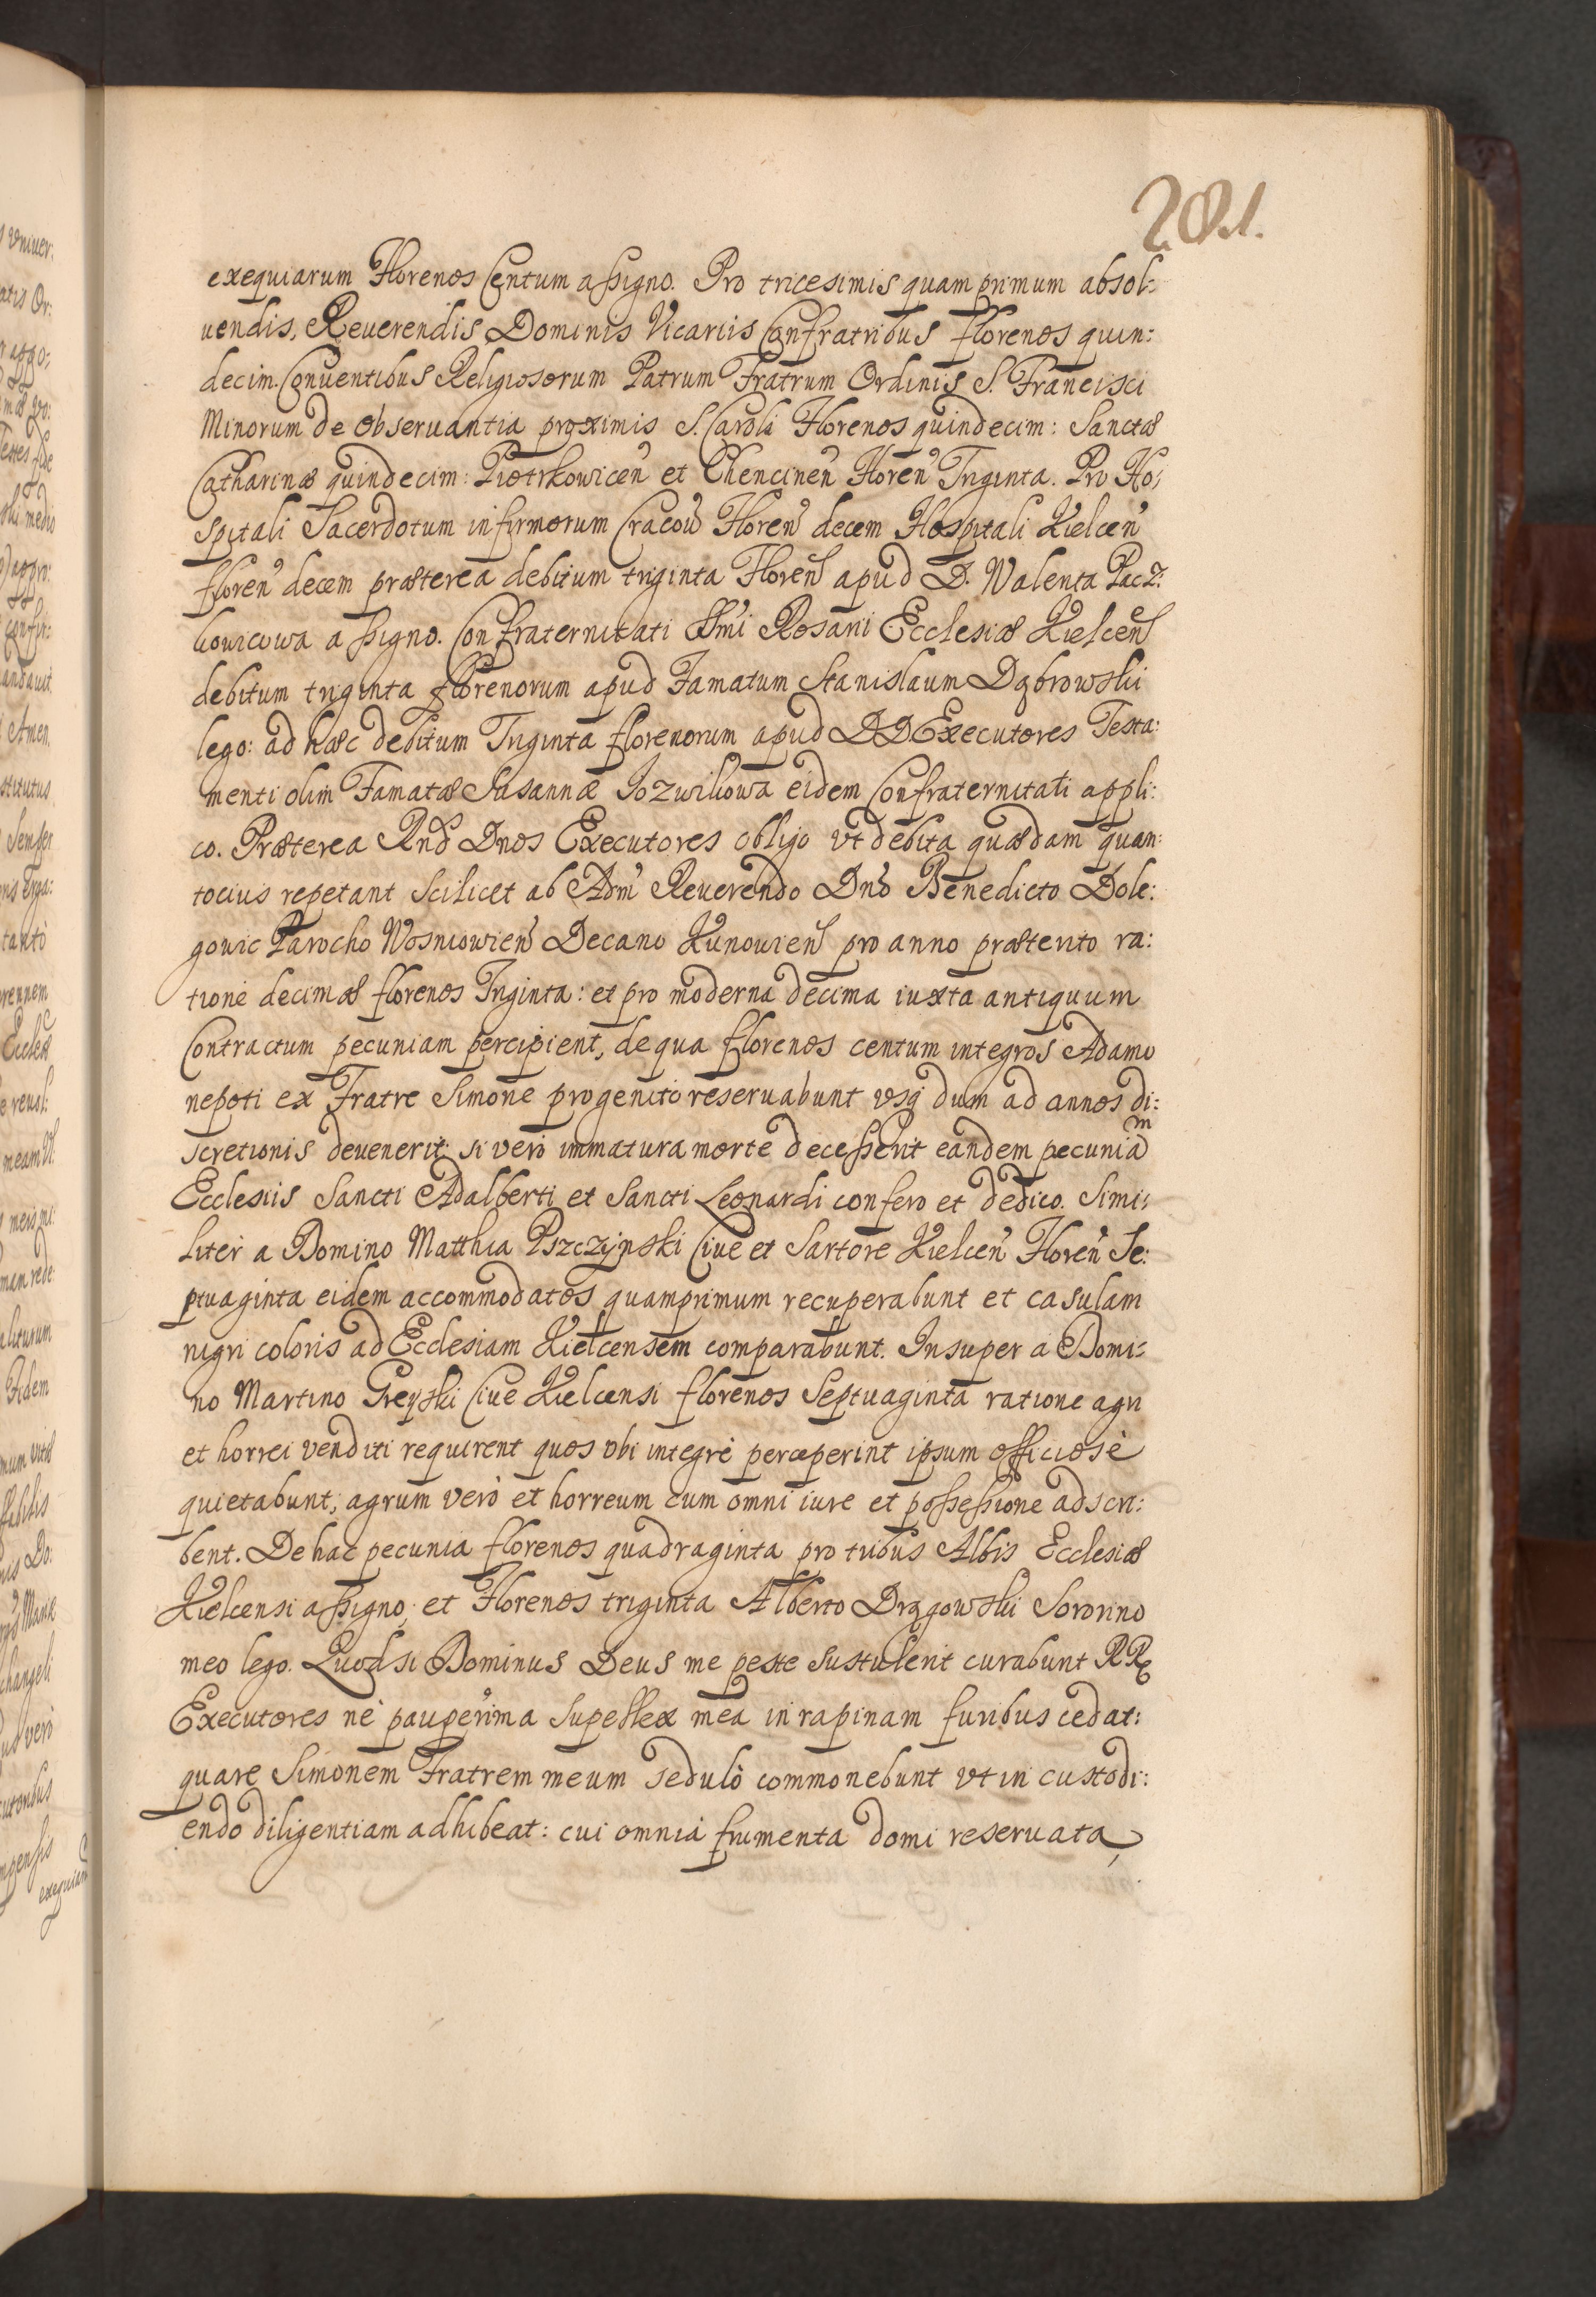 281.
exequiarum Florenos Centum assigno. Pro tricesimis quam primum absol:
uendis, Reuerendis Dominis Vicariis Confratribus florenos quin:
decim. Conuentibus Religiosorum Patrum Fratrum Ordinis S. Francisci
Minorum de Obseruantia proximis S. Caroli Florenos quindecim: Sanctæ
Catharinæ quindecim: Piotrkowicen et Chencinen Floren Triginta. Pro Ho:
spitali Sacerdotum infirmorum Cracou Floren decem Hospitali Kielcen
floren decem præterea debitum triginta Floren apud D. Walenta Pacz:
kowicowa assigno. Confraternitati SSmi Rosarii Ecclesiæ Kielcen
debitum triginta florenorum apud Famatum Stanislaum Dąbrowski
lego: ad hæc debitum Triginta florenorum apud DD Executores Testa:
menti olim Famatæ Susannæ Jozwikowa eidem Confraternitati appli:
co. Præterea Rnd Dnos Executores obligo vt debita quædam quan:
tocius repetant Scilicet ab Adm Reuerendo Dno Benedicto Dole:
gowic Parocho Wosniowien Decano Kunowien pro anno præterito ra:
tione decimæ florenos Triginta: et pro moderna decima iuxta antiquum
Contractum pecuniam percipient, de qua florenos centum integros Adamo
nepoti ex Fratre Simone progenito reseruabunt vsq dum ad annos di:
scretionis deuenerit: si verò immatura morte decesserit eandem pecuniam
Ecclesiis Sancti Adalberti et Sancti Leonardi confero et dedico. Simi:
liter a Domino Matthia Pszczynski Ciue et Sartore Kielcen Floren Se:
ptuaginta eidem accommodatos quamprimum recuperabunt et casulam
nigri coloris ad Ecclesiam Kielcensem comparabunt. Insuper a Domi:
no Martino Greyski Ciue Kielcensi florenos Septuaginta ratione agri
et horrei venditi requirent quos vbi integrè perceperint ipsum officiosè
quietabunt; agrum verò et horreum cum omni iure et possessione adscri:
bent. De hac pecunia florenos quadraginta pro tribus Albis Ecclesiæ
Kielcensi assigno, et Florenos triginta Alberto Drągowski Sororino
meo lego. Quodsi Dominus Deus me peste sustulerit curabunt RR
Executores nè pauperrima Supellex mea in rapinam furibus cedat:
quare Simonem Fratrem meum sedulò commonebunt vt in custodi:
endo diligentiam adhibeat: cui omnia frumenta domi reseruata,